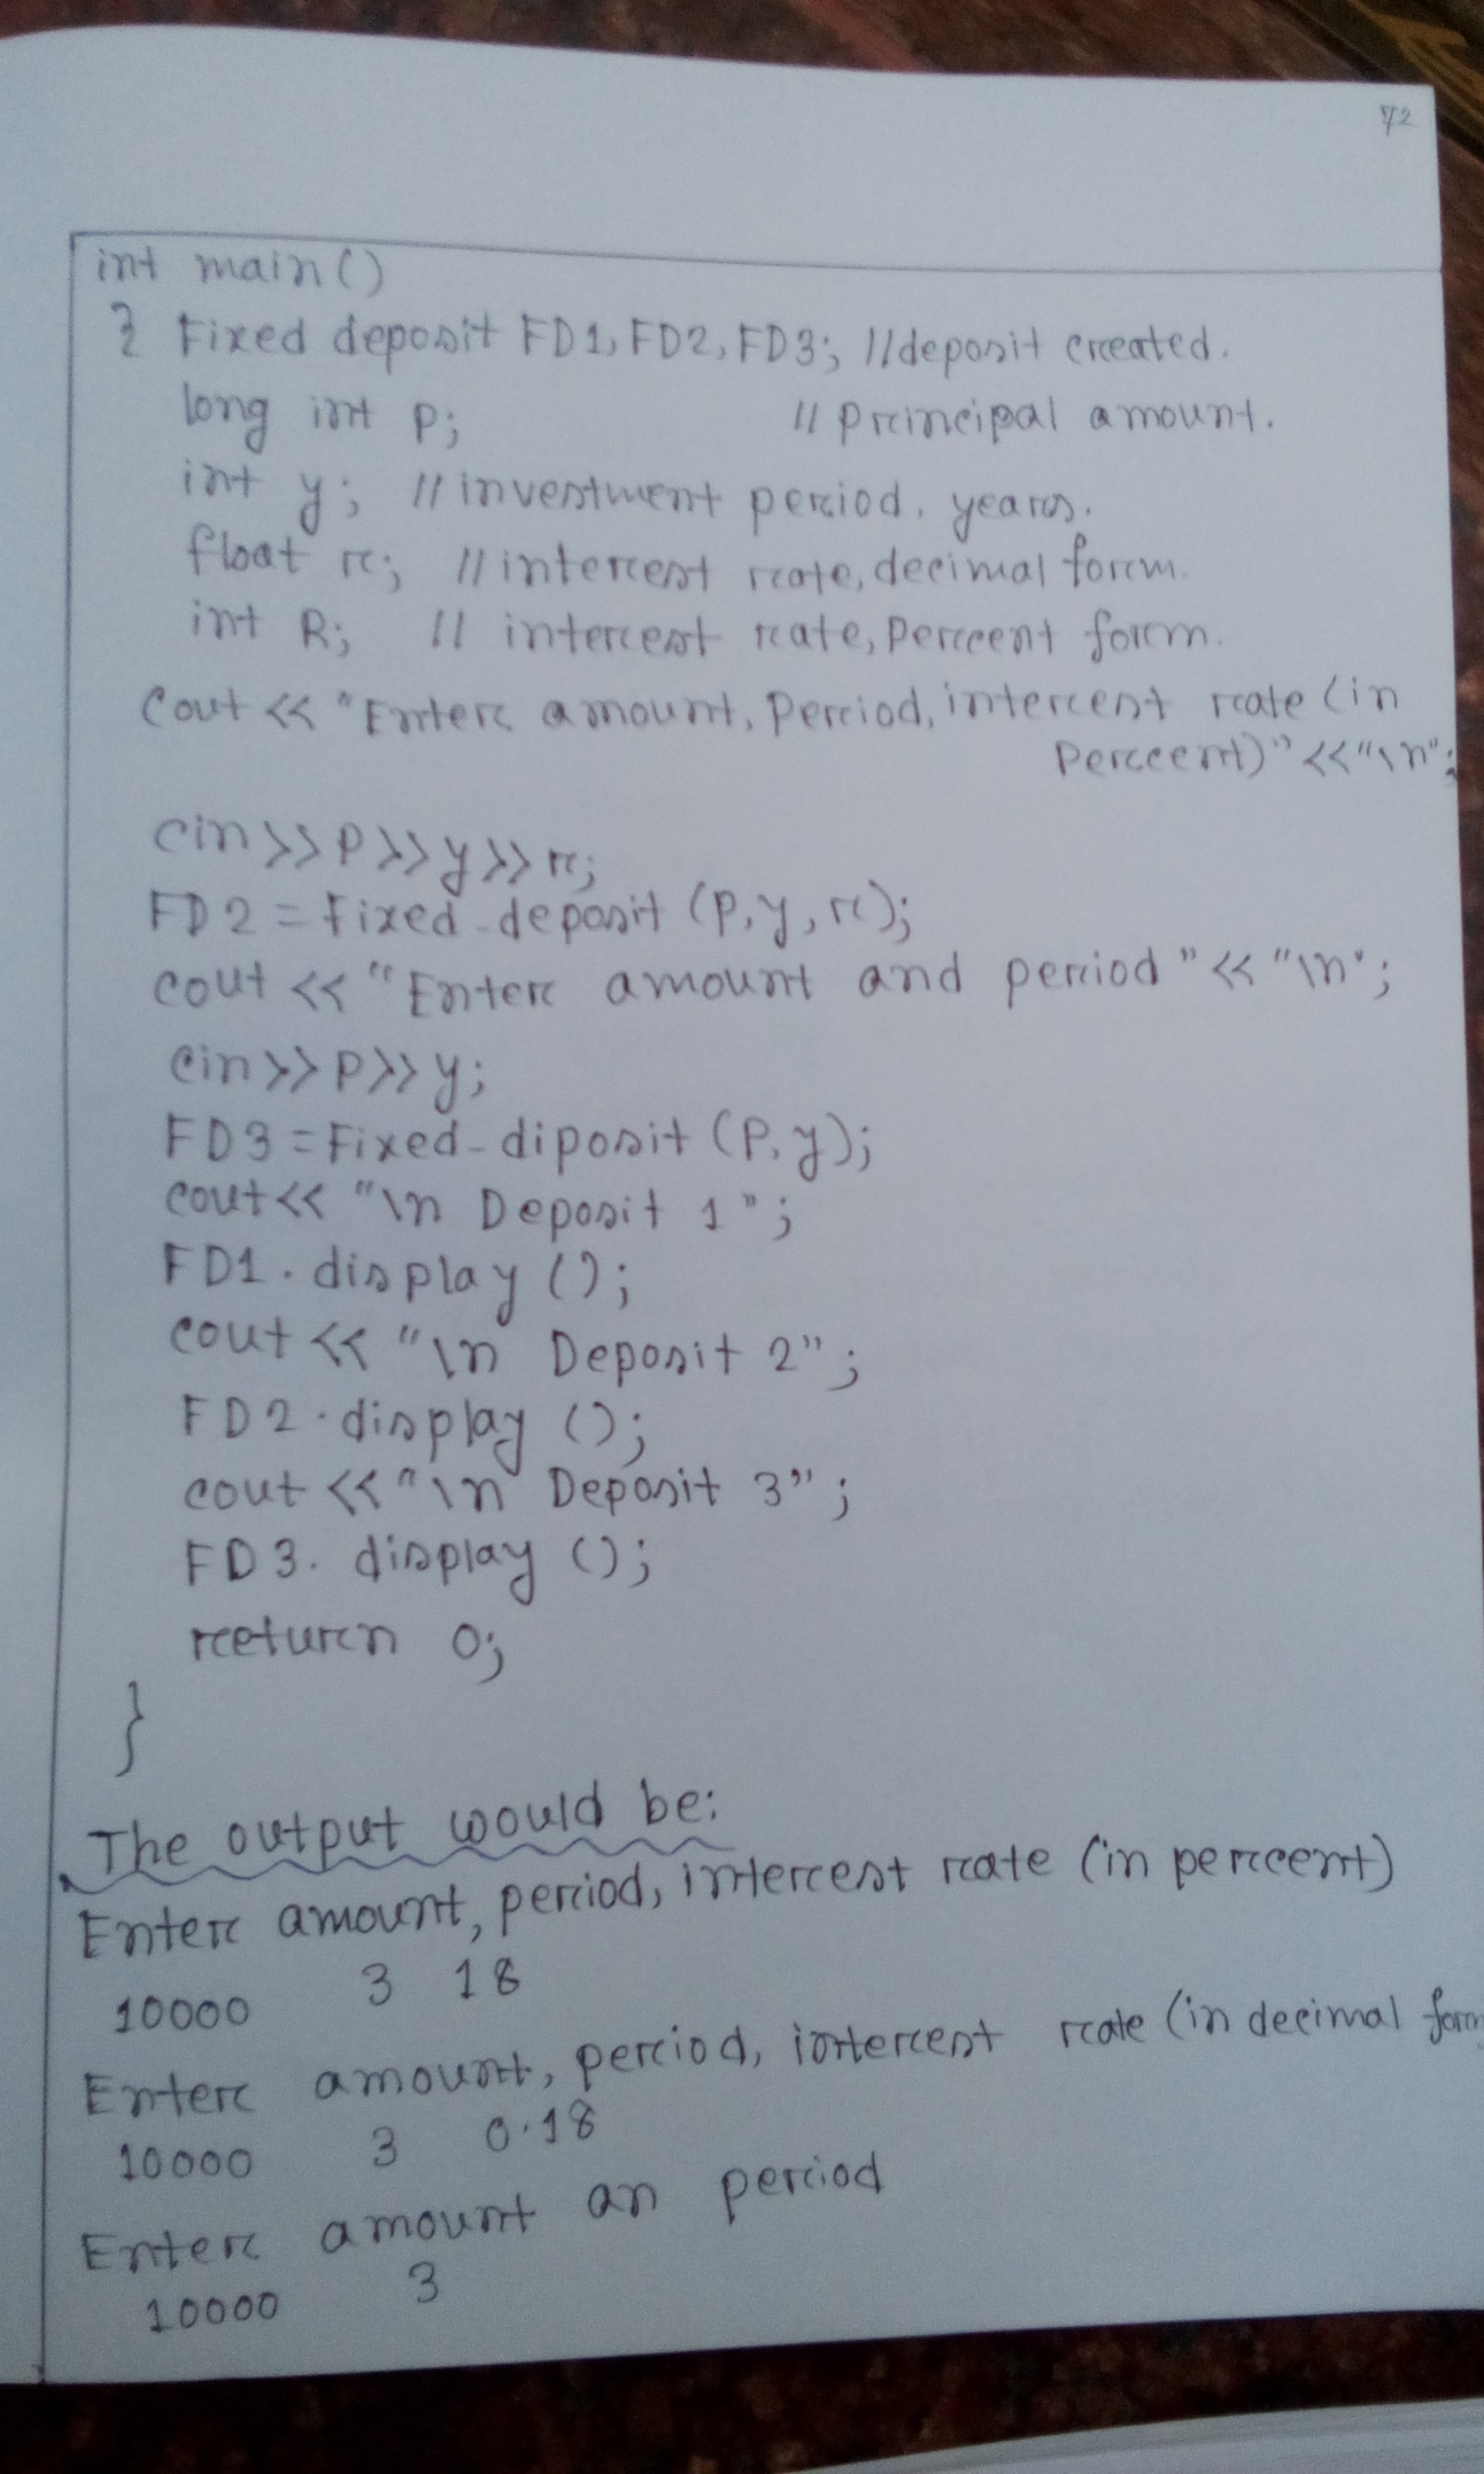 72
int main()
{ Fixed deposit FD1, FD2, FD3; //deposit created.
long int P; // Principal amount.
int y; // investment period. years.
float r; // interest rate, decimal form.
int R; // interest rate, Percent form.
Cout << "Enter amount, Period, interest rate (in
Percent)" << "\n";
cin>>P>>y>>r;
FD2 = Fixed-deposit (P, y, r);
cout << "Enter amount and period" << "\n";
cin>>P>>y;
FD3 = Fixed-diposit (P, y);
cout << "\n Deposit 1";
FD1. display ();
cout << "\n Deposit 2";
FD2. display ();
cout << "\n Deposit 3";
FD3. display ();
return 0;
}
The output would be:
Enter amount, period, interest rate (in percent)
10000 3 18
Enter amount, period, interest rate (in decimal form
10000 3 0.18
Enter amount an period
10000 3